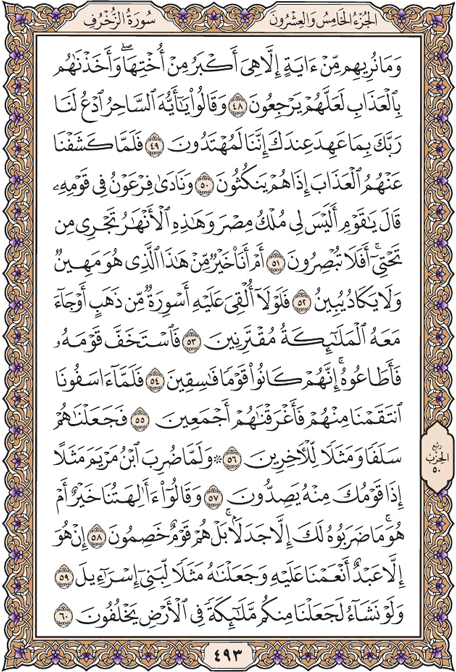 الجزء الخامس والعشرون
سورة الزخرف
وَمَا نُرِيهِم مِّنْ ءَايَةٍ إِلَّا هِىَ أَكْبَرُ مِنْ أُخْتِهَا ۖ وَأَخَذْنَٰهُم
بِالْعَذَابِ لَعَلَّهُمْ يَرْجِعُونَ ٤٨ وَقَالُوا۟ يَٰٓأَيُّهَ السَّاحِرُ ادْعُ لَنَا
رَبَّكَ بِمَا عَهِدَ عِندَكَ إِنَّنَا لَمُهْتَدُونَ ٤٩ فَلَمَّا كَشَفْنَا
عَنْهُمُ الْعَذَابَ إِذَا هُمْ يَنكُثُونَ ٥٠ وَنَادَىٰ فِرْعَوْنُ فِى قَوْمِهِۦ
قَالَ يَٰقَوْمِ أَلَيْسَ لِى مُلْكُ مِصْرَ وَهَٰذِهِ الْأَنْهَٰرُ تَجْرِى مِن
تَحْتِىٓ ۖ أَفَلَا تُبْصِرُونَ ٥١ أَمْ أَنَا۠ خَيْرٌ مِّنْ هَٰذَا الَّذِى هُوَ مَهِينٌ
وَلَا يَكَادُ يُبِينُ ٥٢ فَلَوْلَآ أُلْقِىَ عَلَيْهِ أَسْوِرَةٌ مِّن ذَهَبٍ أَوْ جَآءَ
مَعَهُ الْمَلَٰٓئِكَةُ مُقْتَرِنِينَ ٥٣ فَاسْتَخَفَّ قَوْمَهُۥ
فَأَطَاعُوهُ ۚ إِنَّهُمْ كَانُوا۟ قَوْمًا فَٰسِقِينَ ٥٤ فَلَمَّآ ءَاسَفُونَا
انتَقَمْنَا مِنْهُمْ فَأَغْرَقْنَٰهُمْ أَجْمَعِينَ ٥٥ فَجَعَلْنَٰهُمْ
سَلَفًا وَمَثَلًا لِّلْءَاخِرِينَ ٥٦ ۞ وَلَمَّا ضُرِبَ ابْنُ مَرْيَمَ مَثَلًا
إِذَا قَوْمُكَ مِنْهُ يَصِدُّونَ ٥٧ وَقَالُوٓا۟ ءَأَٰلِهَتُنَا خَيْرٌ أَمْ
هُوَ ۚ مَا ضَرَبُوهُ لَكَ إِلَّا جَدَلًۢا ۚ بَلْ هُمْ قَوْمٌ خَصِمُونَ ٥٨ إِنْ هُوَ
إِلَّا عَبْدٌ أَنْعَمْنَا عَلَيْهِ وَجَعَلْنَٰهُ مَثَلًا لِّبَنِىٓ إِسْرَٰٓءِيلَ ٥٩
وَلَوْ نَشَآءُ لَجَعَلْنَا مِنكُم مَّلَٰٓئِكَةً فِى الْأَرْضِ يَخْلُفُونَ ٦٠
ربع
الحزب
٥٠
٤٩٣